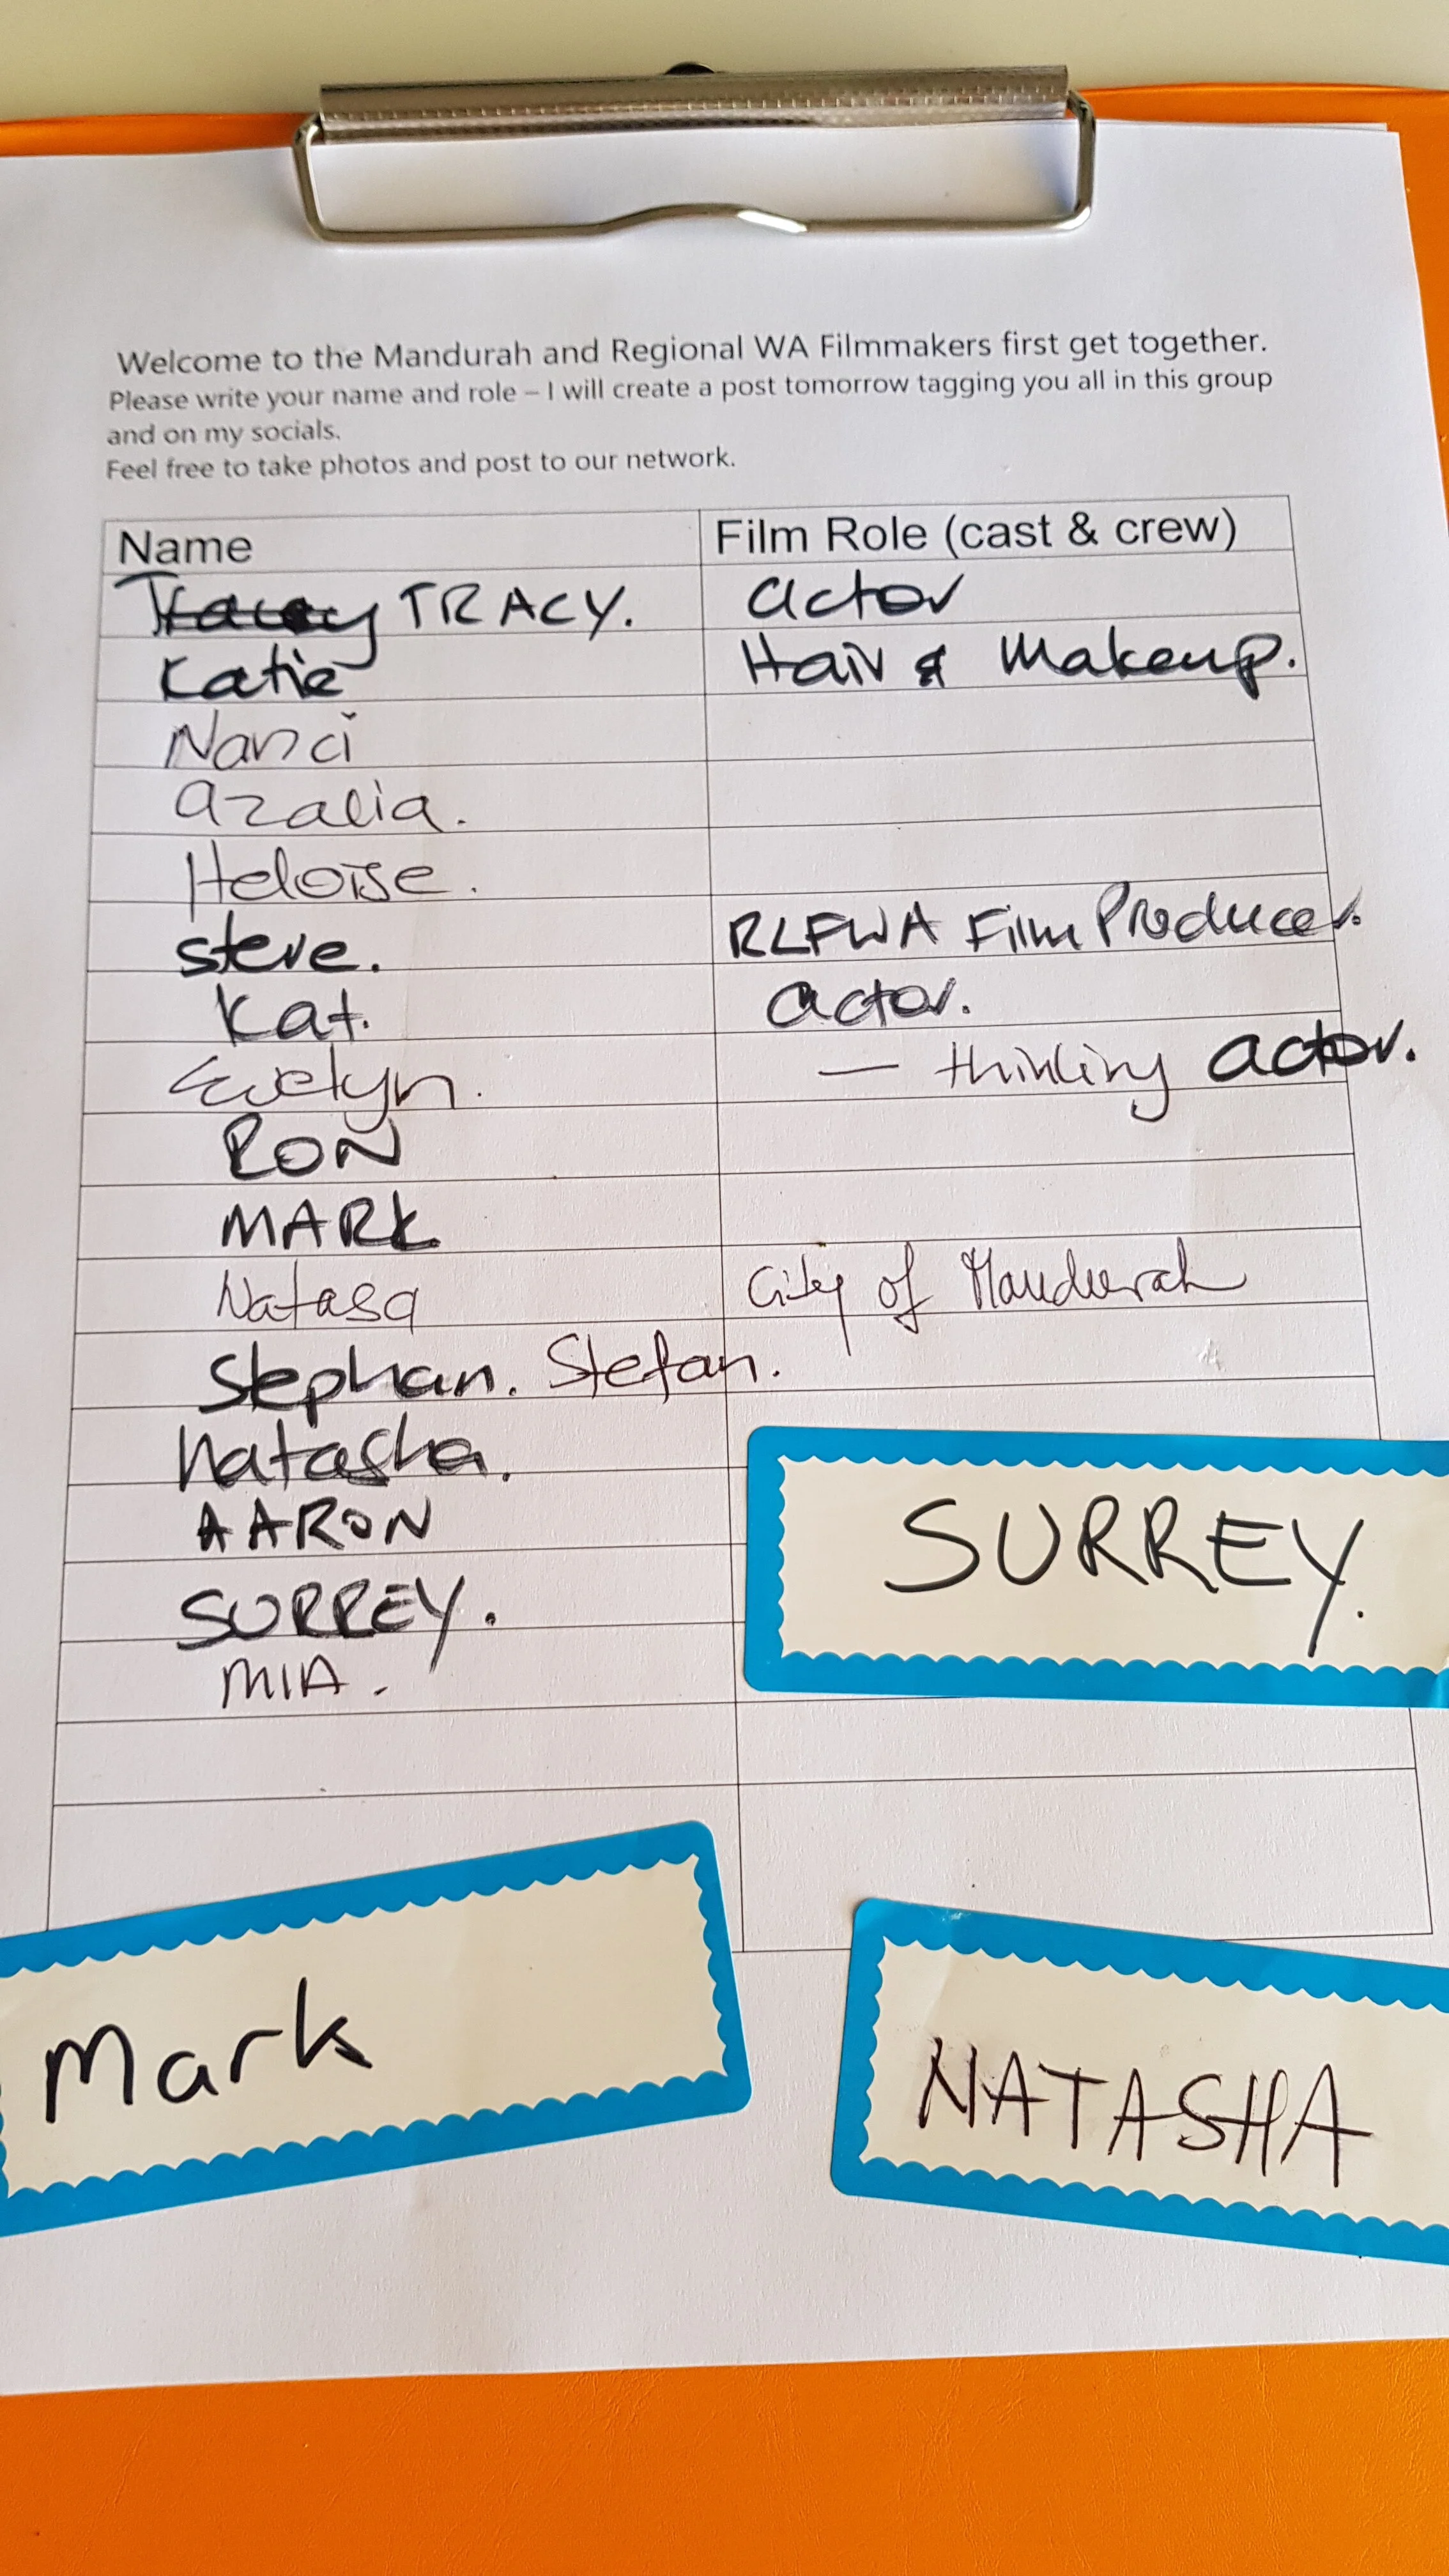 Welcome to the Mandurah and Regional WA Filmmakers first get together.
Please write your name and role – I will create a post tomorrow tagging you all in this group
and on my socials.
Feel free to take photos and post to our network.
Name Film Role (cast & crew)
Tracey TRACY. actor
Katie Hair & Makeup.
Nanci
azalia.
Heloïse.
steve. RLFWA Film Producer.
Kat. actor.
Evelyn. — thinking actor.
RON
MARK
Natasa City of Mandurah
Stephan. Stefan.
Natasha.
AARON
SURREY.
MIA.
SURREY.
Mark
NATASHA